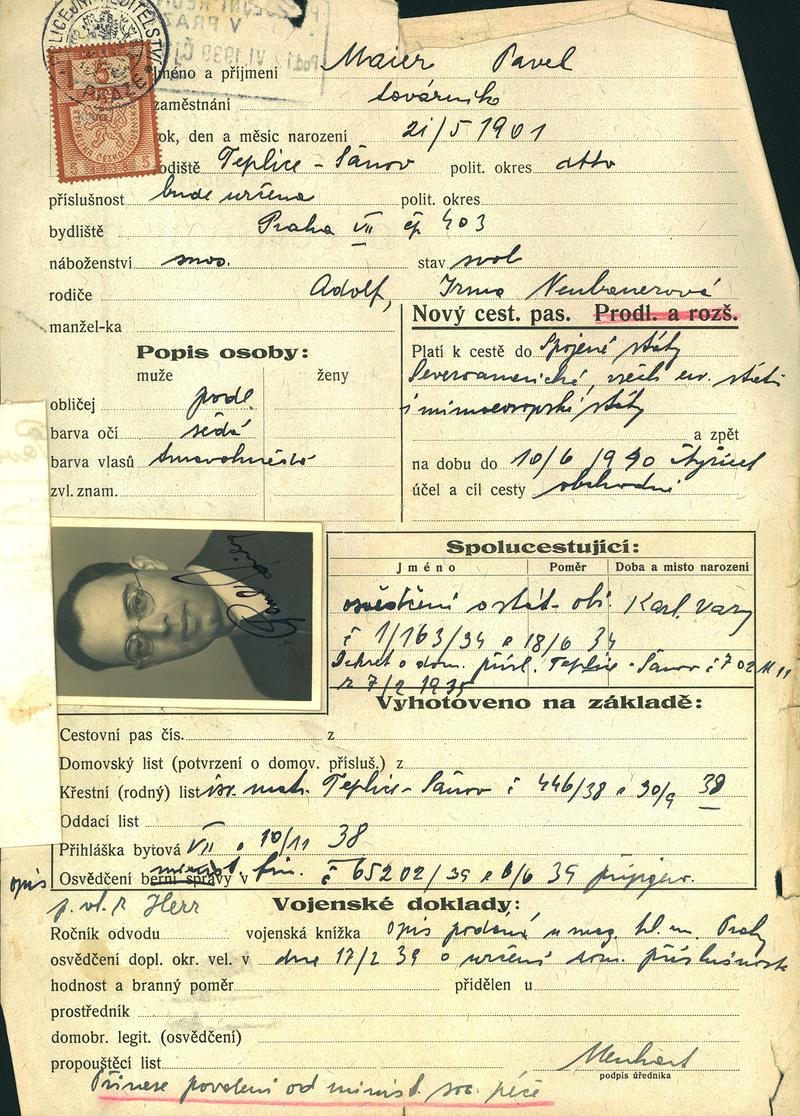 POLICEJNÍ ŘEDITELSTVÍ
V PRAZE
5
REPUBLIKA ČESKOSLOVENSKÁ
V PRAZE
VI. 1939
Jméno a příjmení Maier Pavel
zaměstnání továrník
rok, den a měsíc narození 21/5 1901
rodiště Teplice - Šanov polit. okres dtto
příslušnost bude určena polit. okres
bydliště Praha VII čp 403
náboženství stav svob
rodiče Adolf, Irma Neubauerová
manžel-ka
Nový cest. pas. Prodl. a rozš.
Popis osoby:
muže ženy
obličej podl.
barva očí šedá
barva vlasů tmavohnědá
zvl. znam.
Platí k cestě do Spojené státy
Severoamerické, všech ev. států
i mimoevropské státy
a zpět
na dobu do 10/6 1940 čtyřicet
účel a cíl cesty obchodní
Spolucestující:
Jméno Poměr Doba a místo narození
osvědčení o stát. obč. Karl. Vary
č 1/163/34 z 18/6 34
Dekret o dom. přísl. Teplice - Šanov č
z 7/2 1935
Vyhotoveno na základě:
Cestovní pas čís. z
Domovský list (potvrzení o domov. přísluš.) z
Křestní (rodný) list isr. mat. Teplice - Šanov č 446/38 z 30/9 38
Oddací list
Přihláška bytová VII z 10/11 38
Osvědčení berní správy v minist. fin. č 65202/39 z 6/6 39 připojeno.
opis
p. vl. r. Herr
Vojenské doklady:
Ročník odvodu vojenská knížka opis podání u mag. hl. m. Prahy
osvědčení dopl. okr. vel. v dne 17/2 39 o určení dom. příslušnosti
hodnost a branný poměr přidělen u
prostředník
domobr. legit. (osvědčení)
propouštěcí list
podpis úředníka
Přinese povolení od minist. soc. péče